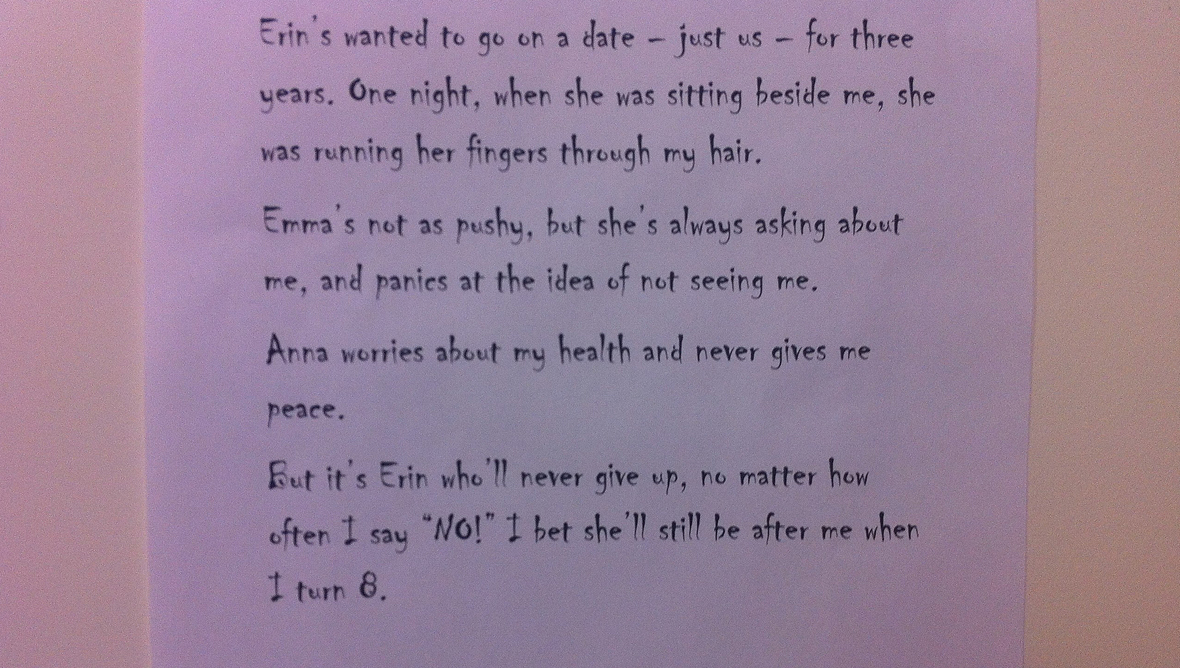 Erin's wanted to go on a date – just us – for three
years. One night, when she was sitting beside me, she
was running her fingers through my hair.
Emma's not as pushy, but she's always asking about
me, and panics at the idea of not seeing me.
Anna worries about my health and never gives me
peace.
But it's Erin who'll never give up, no matter how
often I say “NO!” I bet she'll still be after me when
I turn 8.